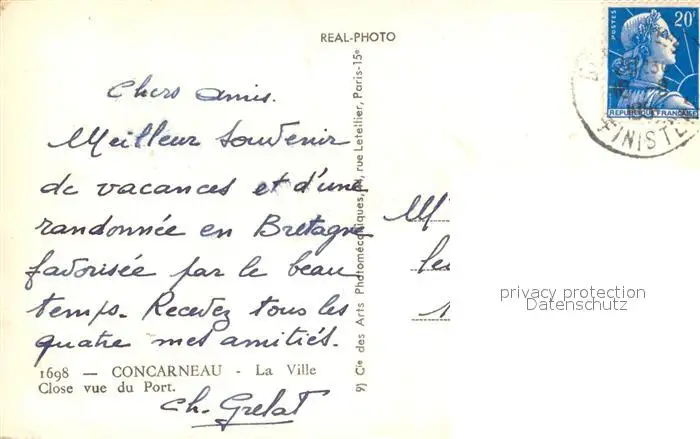 REAL-PHOTO
Chers amis.
Meilleur souvenir
de vacances et d'une
randonnée en Bretagne
favorisée par le beau
temps. Recevez tous les
quatre mes amitiés.
1698 — CONCARNEAU - La Ville
Close vue du Port.
Ch. Grelat
Cie des Arts Photomécaniques, rue Letellier, Paris-15e
POSTES
20F
REPUBLIQUE FRANÇAISE
FINISTE
privacy protection
Datenschutz